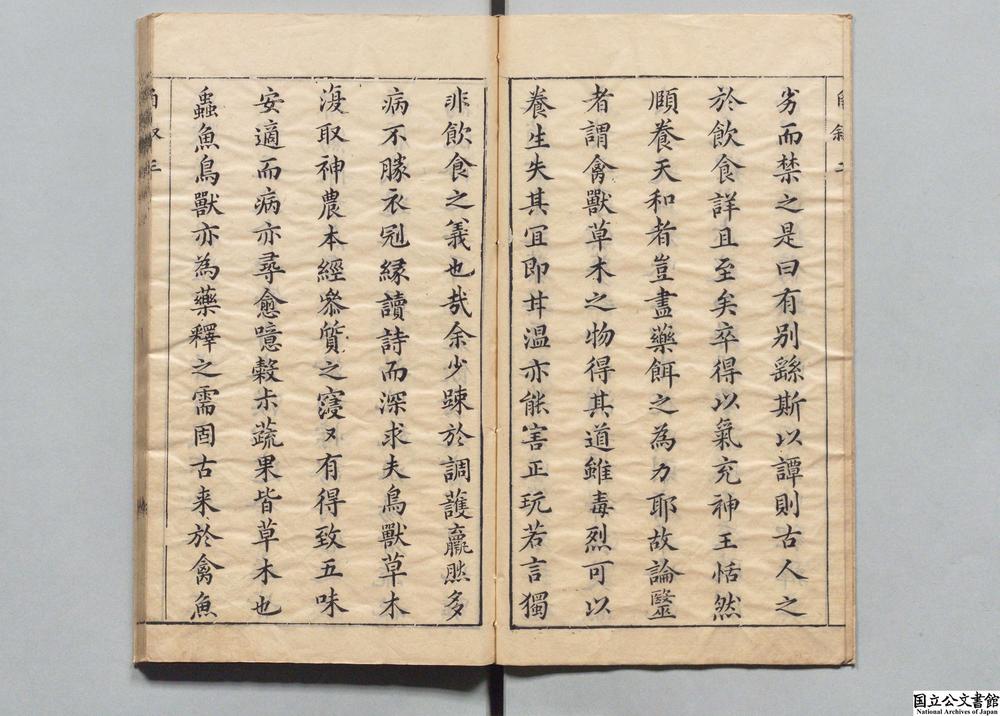 劣而禁之是曰有別繇斯以譚則古人之
於飲食詳且至矣卒得以氣充神王恬然
頤養天和者豈盡藥餌之為力耶故論毉
者謂禽獸草木之物得其道雖毒烈可以
養生失其冝即甘温亦能害正玩若言獨
非飲食之義也㢤余少踈於調護羸然多
病不勝衣冠縁讀詩而深求夫鳥獸草木
復取神農本經叅質之寖又有得致五味
安適而病亦尋愈噫穀朩蔬果皆草木也
蟲魚鳥獸亦為藥釋之需固古来於禽魚
叙三
国立公文書館
National Archives of Japan